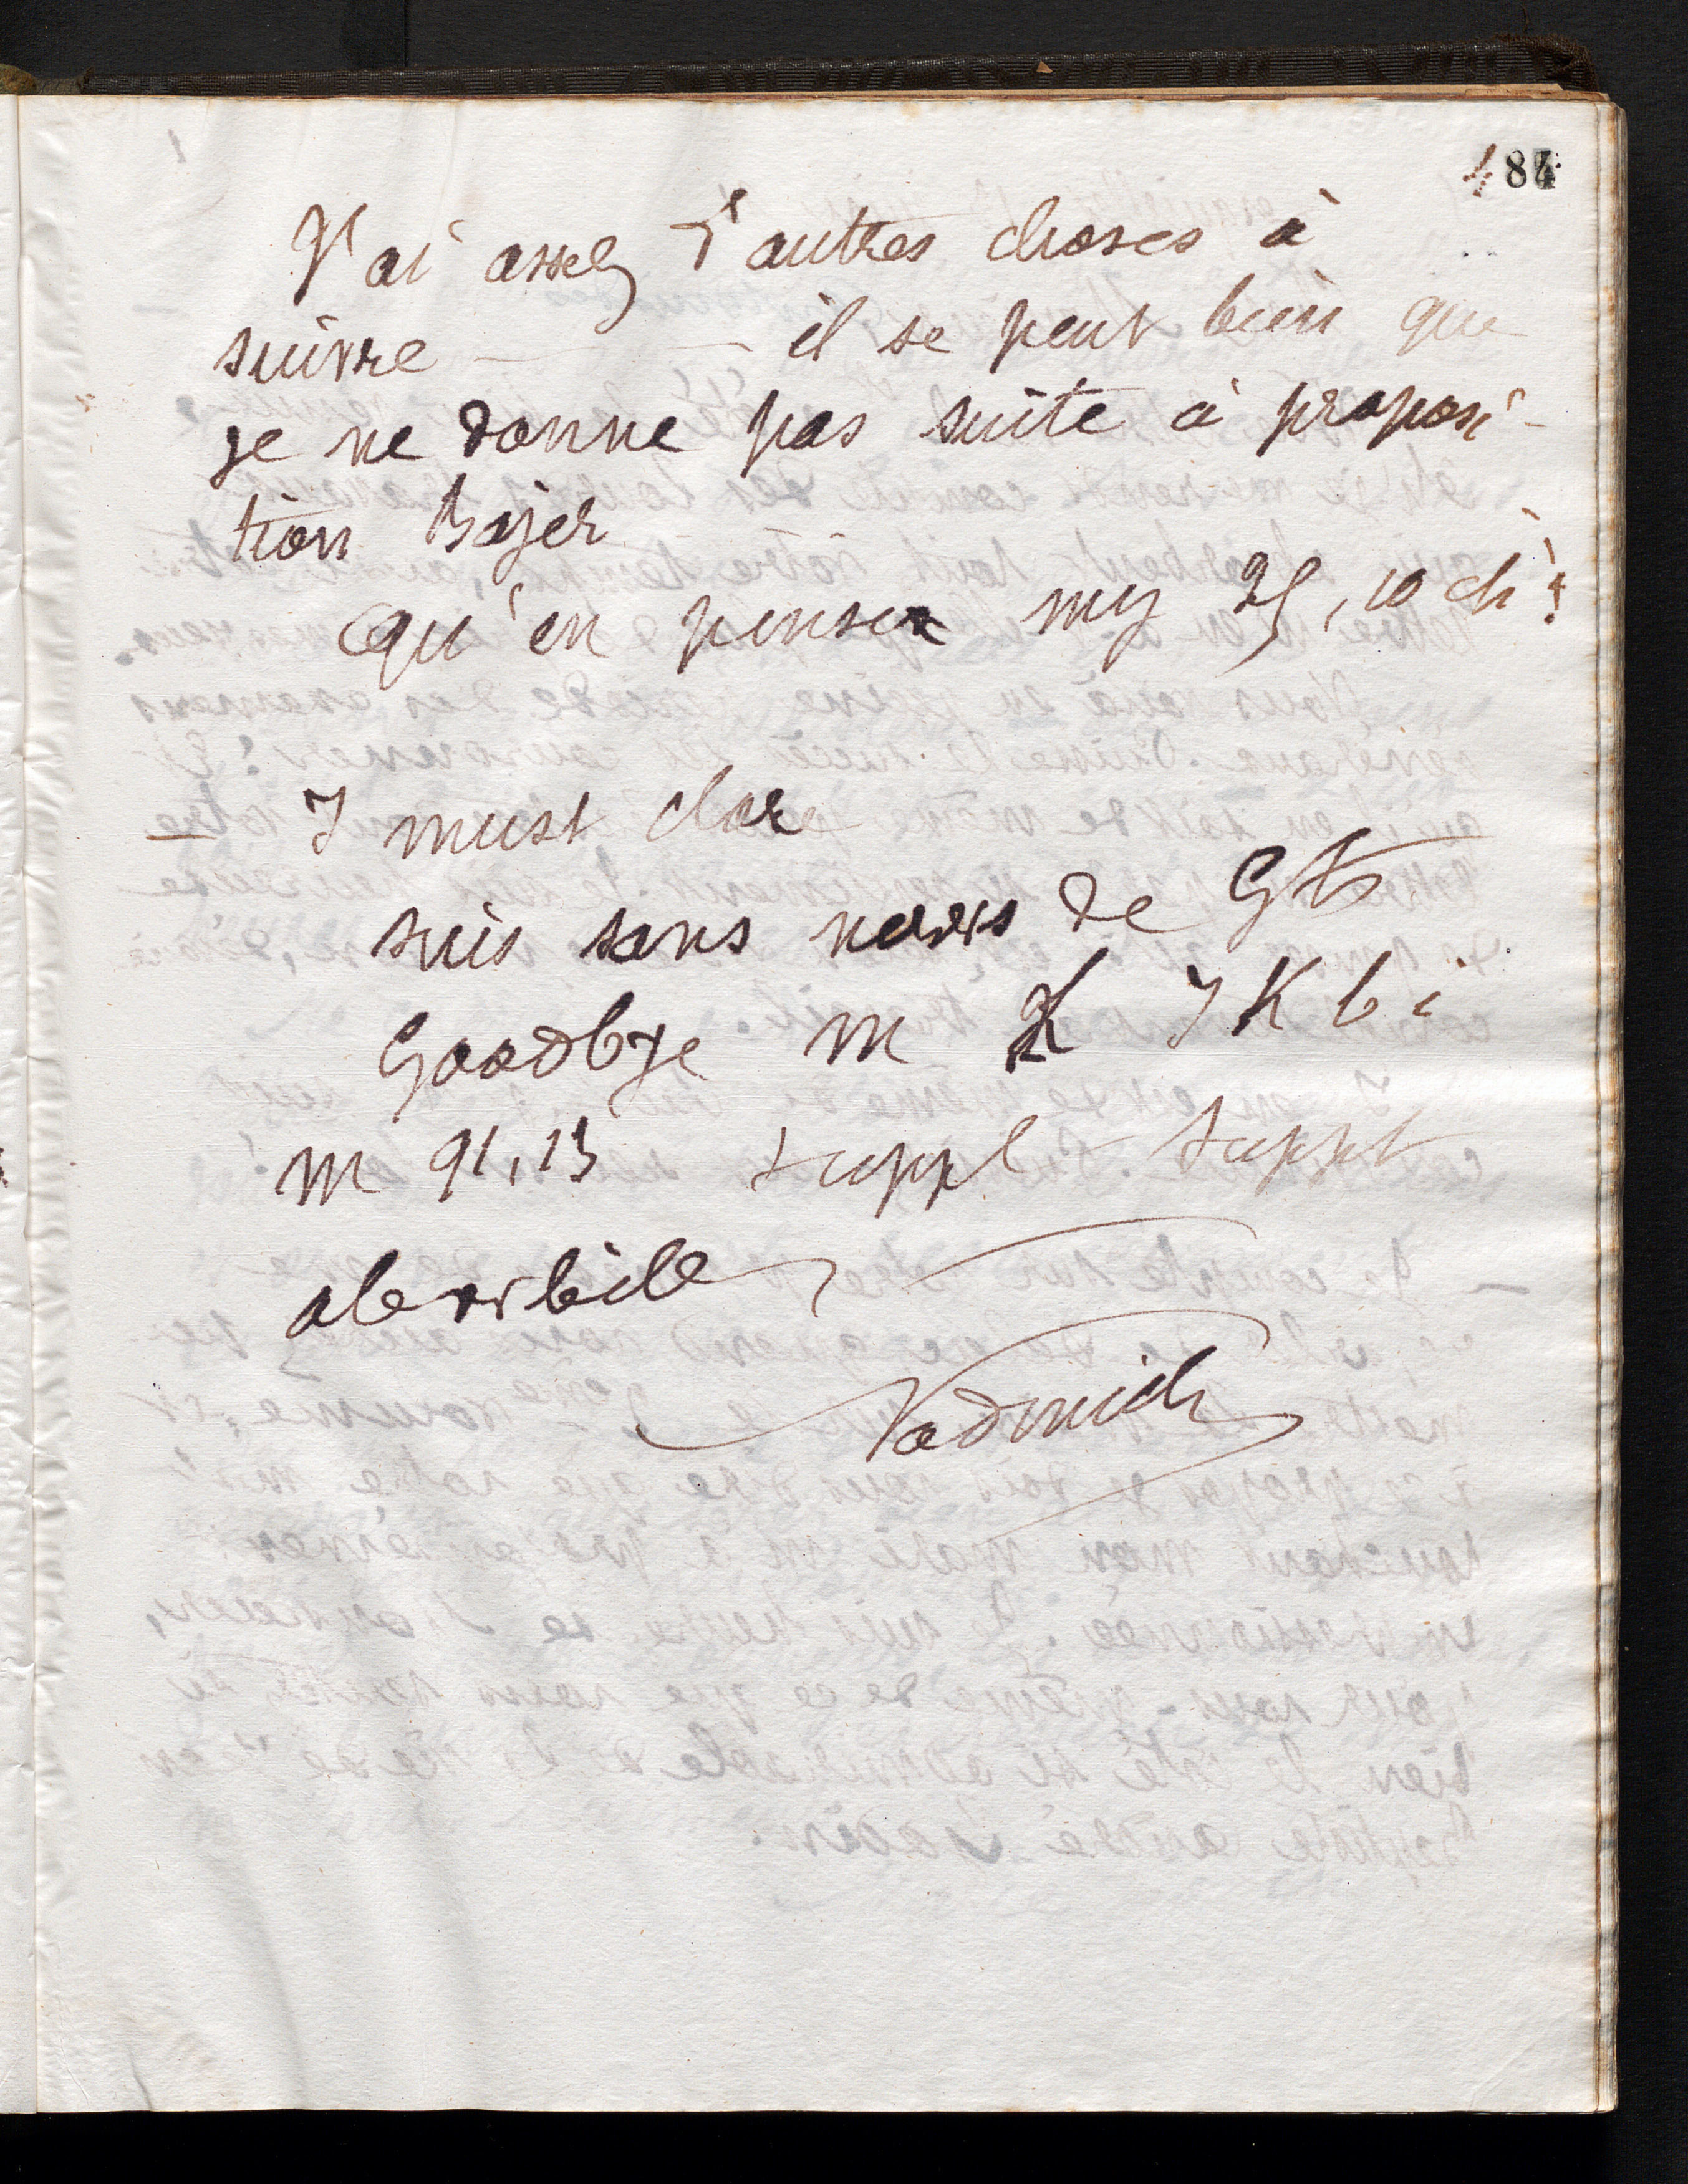 484
J'ai assez d'autres choses à
suivre — — il se peut bien que
je ne donne pas suite à proposi-
tion Bajer
Qu'en pensez my 25, 10 ch?
— I must close
suis sans news de Gtz
Goodbye m I K b i
m 91, 13 suppl suppt